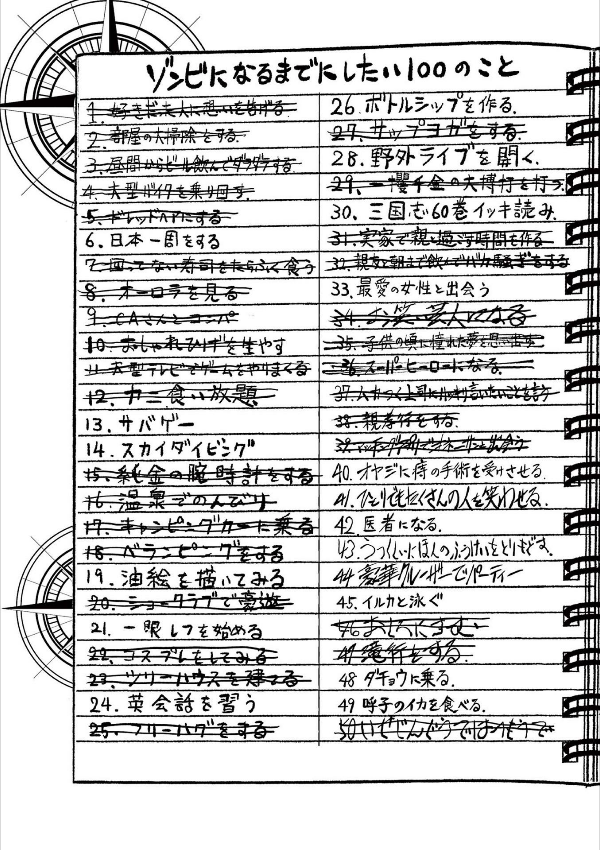 ゾンビになるまでにしたい100のこと
1. 好きだった人に想いを告げる
2. 部屋の大掃除をする
3. 昼間からビール飲んでダラダラする
4. 大型バイクを乗り回す
5. ドレッドヘアにする
6. 日本一周をする
7. 回ってない寿司をたらふく食う
8. オーロラを見る
9. CAさんとコンパ
10. おしゃれひげを生やす
11. 大型テレビでゲームをやりまくる
12. カニ食い放題
13. サバゲー
14. スカイダイビング
15. 純金の腕時計をする
16. 温泉でのんびり
17. キャンピングカーに乗る
18. ベランピングをする
19. 油絵を描いてみる
20. ショークラブで豪遊
21. 一眼レフを始める
22. コスプレをしてみる
23. ツリーハウスを建てる
24. 英会話を習う
25. フリーハグをする
26. ボトルシップを作る.
27. サップヨガをする.
28. 野外ライブを開く.
29. 一攫千金の大博打を打つ.
30. 三国志60巻イッキ読み.
31. 実家で親と過ごす時間を作る
32. 親友と朝まで飲んでバカ騒ぎをする
33. 最愛の女性と出会う
34. お笑い芸人になる
35. 子供の頃に憧れた夢を思い出す
36. スーパーヒーローになる.
37. ムカつく上司にハッキリ言いたいことを言う
38. 親孝行をする.
39. マッチングアプリで
40. オヤジに痔の手術を受けさせる.
41. ひとりでもたくさんの人を笑わせる.
42. 医者になる.
43. うつくしいにほんのふうけいをとりもどす.
44. 豪華クルーザーでパーティー
45. イルカと泳ぐ
46 おしろにすむ
47 滝行をする.
48 ダチョウに乗る.
49 呼子のイカを食べる.
50